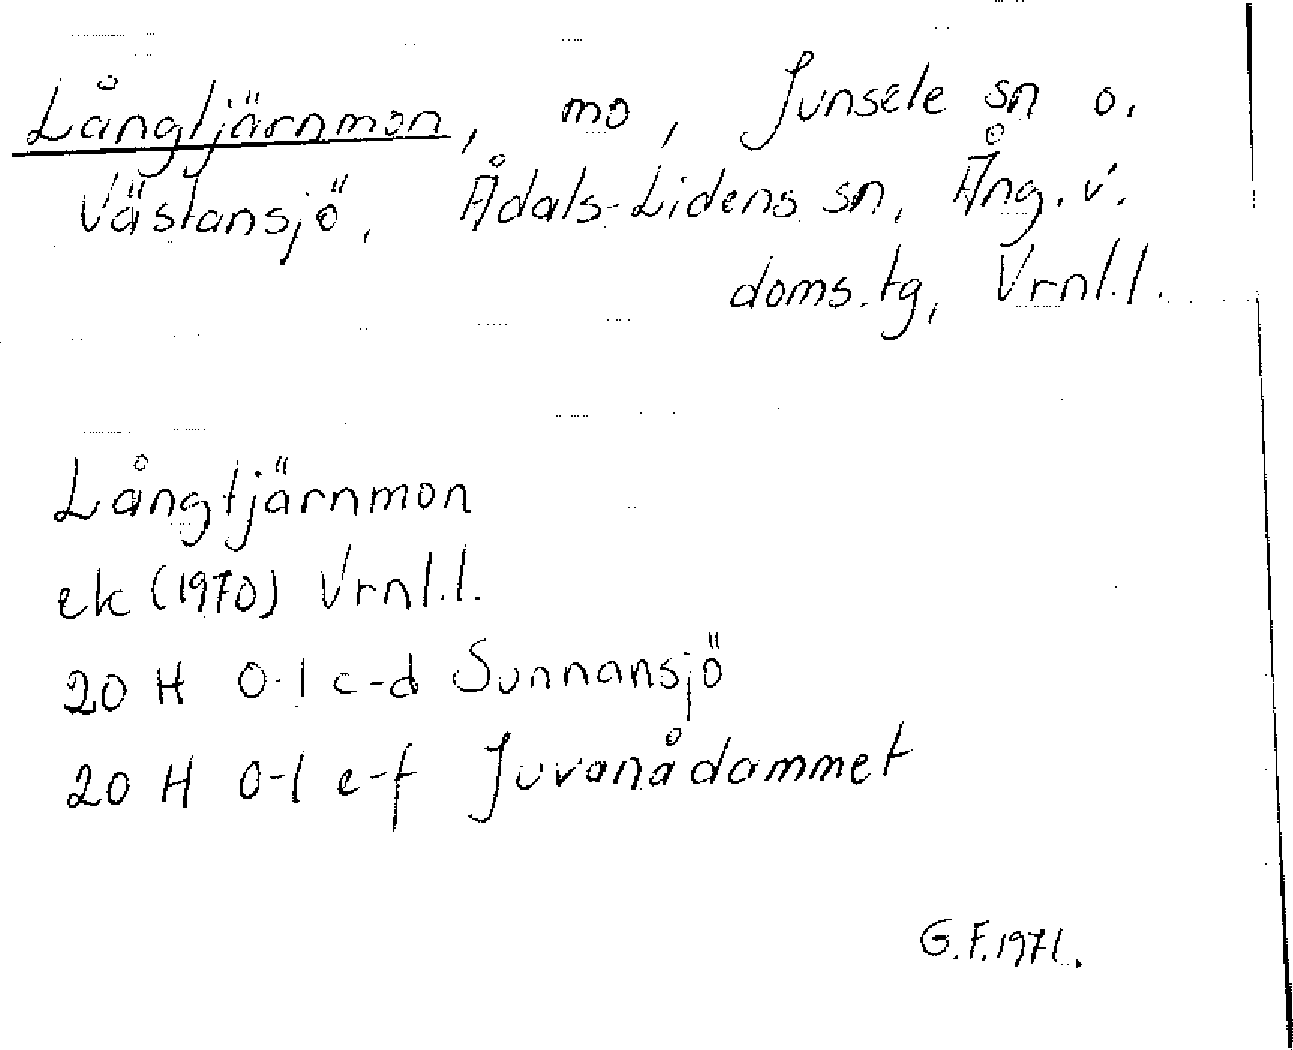 Långtjärnmon, mo, Junsele sn o.
Västansjö, Ådals-Lidens sn, Ång. v.
doms. tg, Vrnl.l.
Långtjärnmon
ek (1970) Vrnl.l.
20 H 0-1 c-d Sunnansjö
20 H 0-1 e-f Juvanådammet
G.F.1971.